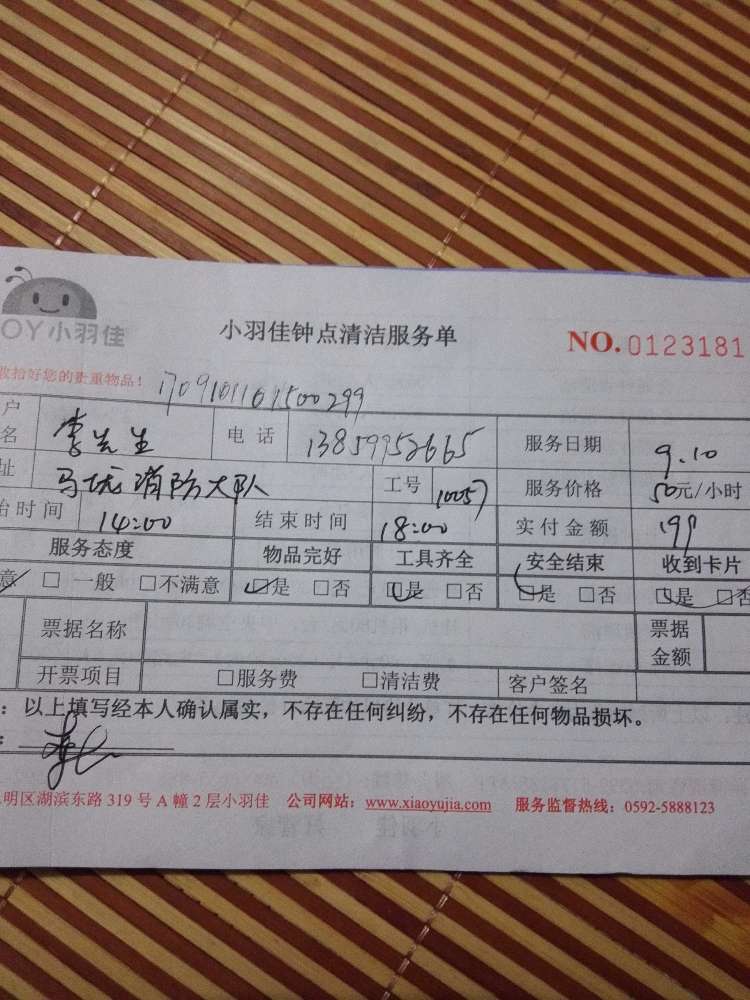 OY小羽佳
小羽佳钟点清洁服务单
NO.0123181
收拾好您的贵重物品！
户名 李先生 电话 13859952665 服务日期 9.10
址 马垅消防大队 工号 10057 服务价格 50元/小时
始时间 14:00 结束时间 18:00 实付金额 199
服务态度 物品完好 工具齐全 安全结束 收到卡片
意 □一般 □不满意 □是 □否 □是 □否 □是 □否 □是 □否
票据名称 票据金额
开票项目 □服务费 □清洁费 客户签名
：以上填写经本人确认属实，不存在任何纠纷，不存在任何物品损坏。
明区湖滨东路319号A幢2层小羽佳 公司网站：www.xiaoyujia.com 服务监督热线：0592-5888123